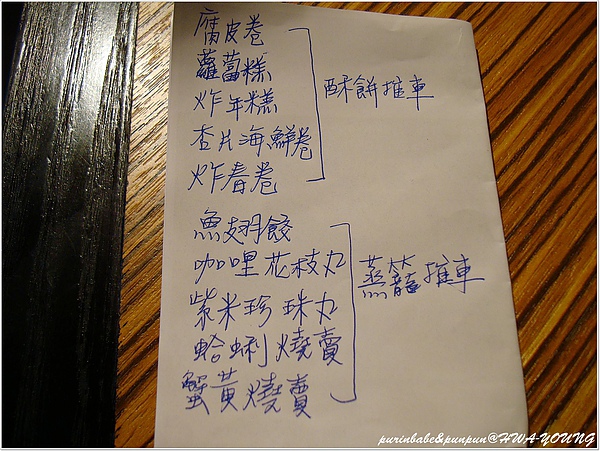 腐皮卷
蘿蔔糕
炸年糕
杏片海鮮卷
炸春卷
酥餅推車
魚翅餃
咖哩花枝丸
紫米珍珠丸
蛤蜊燒賣
蟹黃燒賣
蒸籠推車
purinbabe&punpun@HWA-YOUNG